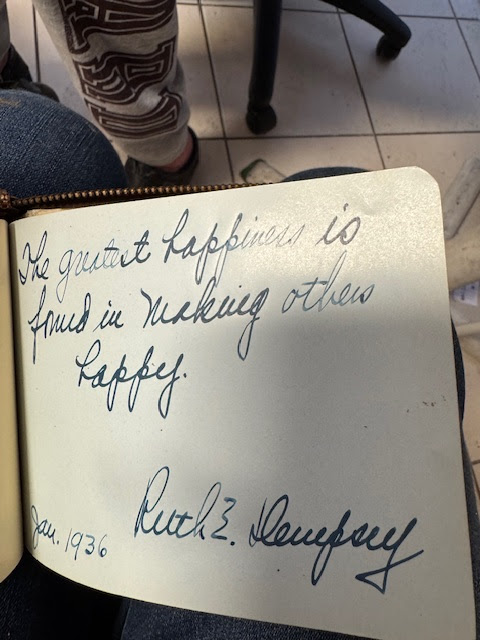 The greatest happiness is
found in making others
happy.
Jan. 1936
Ruth E. Dempsey